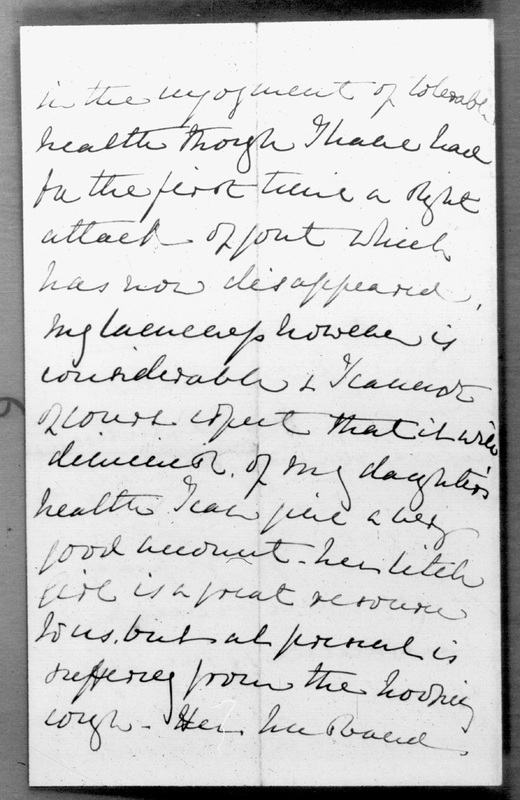 in the enjoyment of tolerable
health though I have had
for the first time a slight
attack of gout which
has now disappeared,
my lameness however is
considerable & I cannot
of course expect that it will
diminish. of my daughter's
health I can give a very
good account. her little
girl is a great resource
to us. but at present is
suffering from the hooping
cough - Her husband